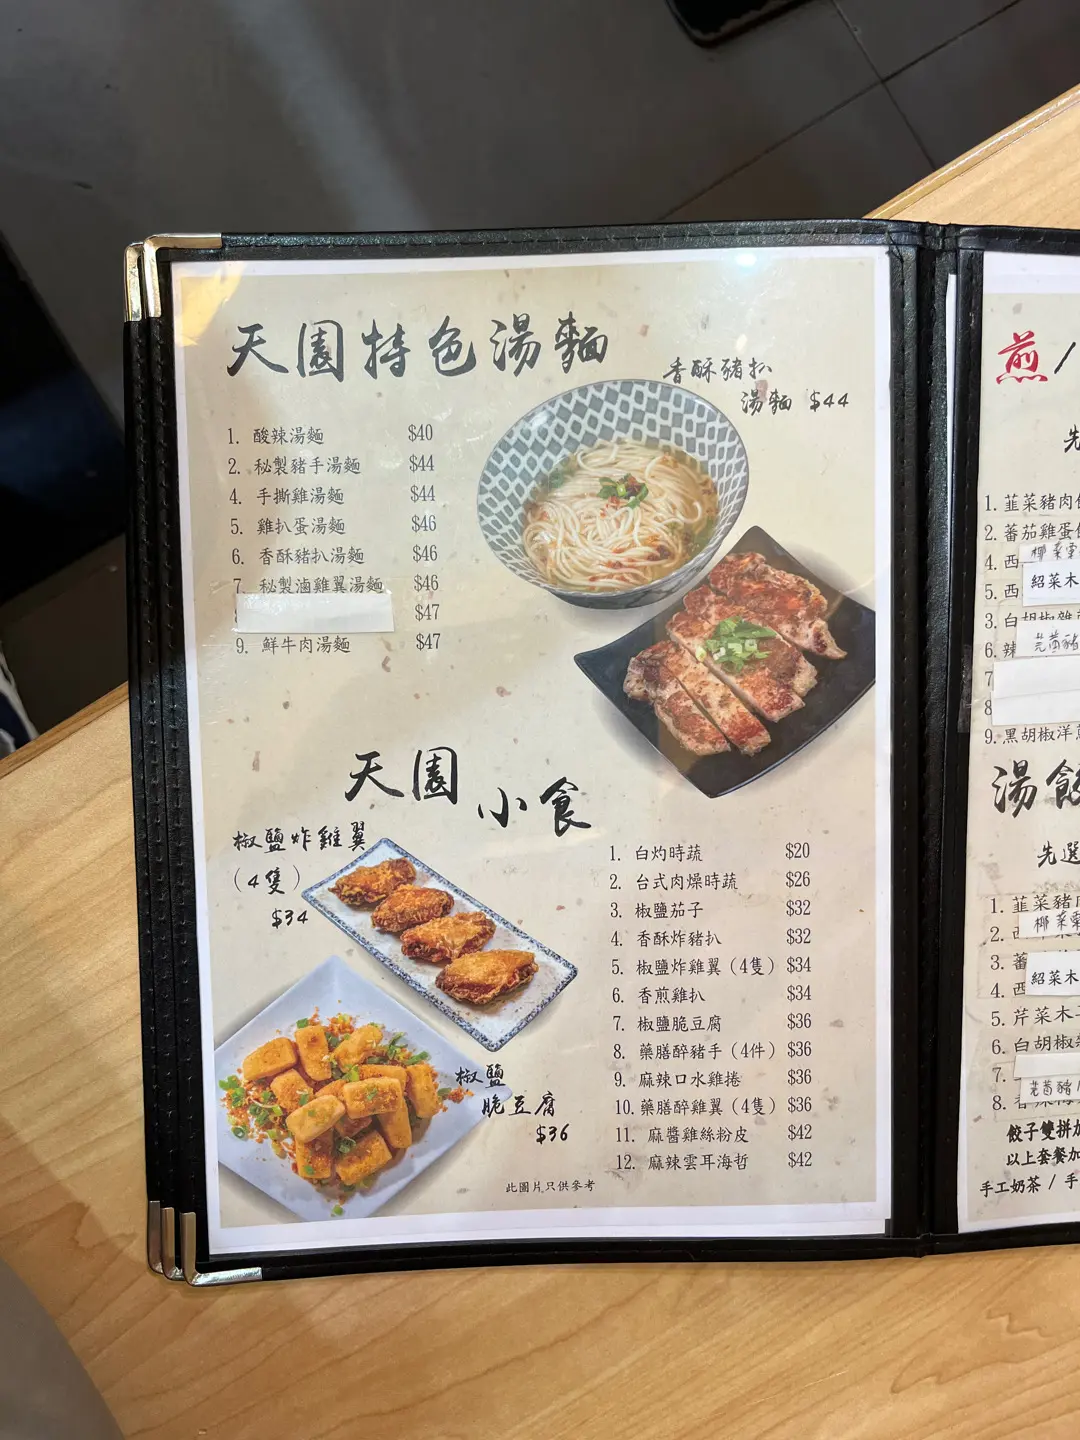 天園特色湯麵
香酥豬扒
湯麵 $44
1. 酸辣湯麵 $40
2. 秘製豬手湯麵 $44
4. 手撕雞湯麵 $44
5. 雞扒蛋湯麵 $46
6. 香酥豬扒湯麵 $46
7. 秘製滷雞翼湯麵 $46
$47
9. 鮮牛肉湯麵 $47
天園
小食
椒鹽炸雞翼
(4隻)
$34
椒鹽
脆豆腐
$36
1. 白灼時蔬 $20
2. 台式肉燥時蔬 $26
3. 椒鹽茄子 $32
4. 香酥炸豬扒 $32
5. 椒鹽炸雞翼(4隻) $34
6. 香煎雞扒 $34
7. 椒鹽脆豆腐 $36
8. 藥膳醉豬手(4件) $36
9. 麻辣口水雞捲 $36
10. 藥膳醉雞翼(4隻) $36
11. 麻醬雞絲粉皮 $42
12. 麻辣雲耳海哲 $42
此圖片只供參考
煎/
先
1. 韮菜豬肉
2. 蕃茄雞蛋
4. 西
5. 西 紹菜木
3. 白胡椒
6. 辣
7
8
9. 黑胡椒洋
湯餃
先選
1. 韮菜豬
2.
3. 蕃
4. 西 紹菜木
5. 芹菜木
6. 白胡椒
7.
8.
餃子雙拼加
以上套餐加
手工奶茶 / 手